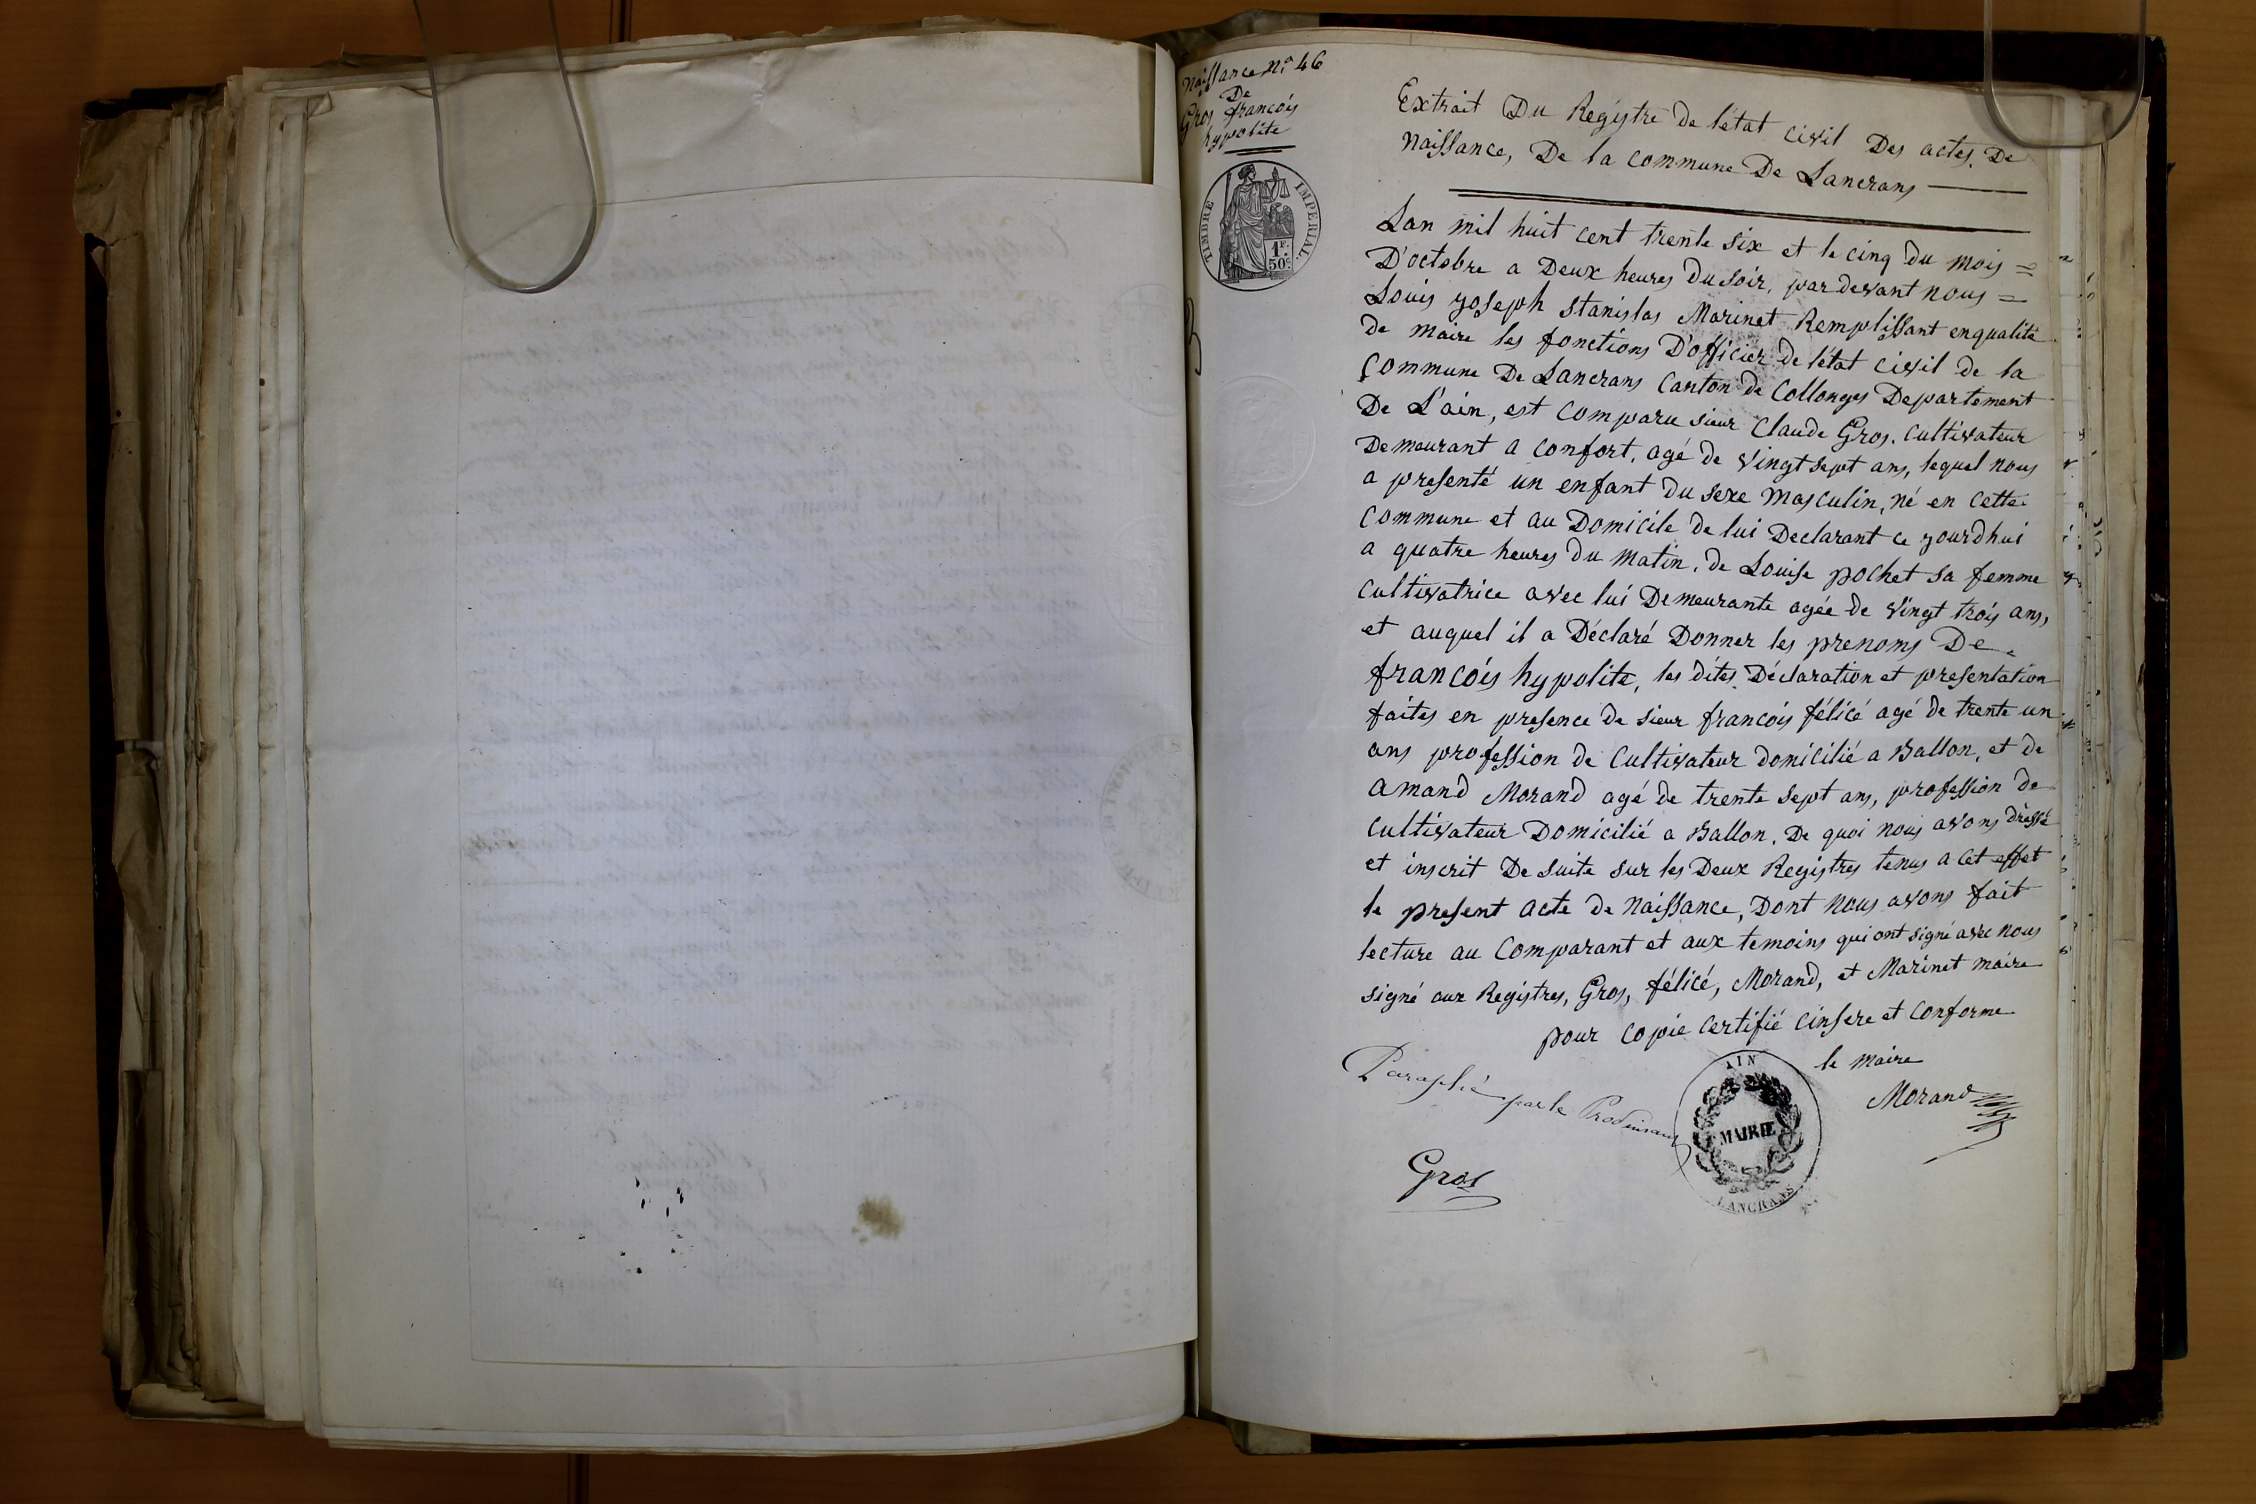 Naissance N.o 46
De
Gros françois
hypolite
TIMBRE IMPERIAL.
1F.
50c.
Extrait Du Registre de létat civil Des actes De
Naissance, De la commune De Lancrans
Lan mil huit cent trente six et le cinq du mois =
D'octobre a Deux heures Du soir, par devant nous =
Louis yoseph stanislas Marinet Remplissant enqualité
de Maire les fonctions D'officier de létat civil de la
Commune De Lancrans Canton de Collonges Departement
De L'ain, est comparu sieur Claude Gros. cultivateur
Demeurant a confort, agé de vingt sept ans, lequel nous
a presenté un enfant Du sexe masculin, né en cette
commune et au Domicile de lui Declarant ce yourdhui
a quatre heures Du Matin, de Louise pochet sa femme
cultivatrice avec lui Demeurante agée de vingt trois ans,
et auquel il a Déclaré Donner les prenoms De
françois hypolite, les dites Déclaration et presentation
faites en presence de sieur françois félicé agé de trente un
ans profession de cultivateur domicilié a Ballon, et de
amand Morand agé de trente sept ans, profession de
cultivateur Domicilié a Ballon. De quoi nous avons dressé
et inscrit De suite sur les Deux Registres tenus a cet effet
le present acte de Naissance, Dont nous avons fait
lecture au Comparant et aux temoins qui ont signé avec nous
signé aux Registres, Gros, félicé, Morand, et Marinet maire
pour copie certifié cinsere et conforme
le maire
Paraphé par le
Morand
AIN
MAIRIE
LANCRANS
Gros